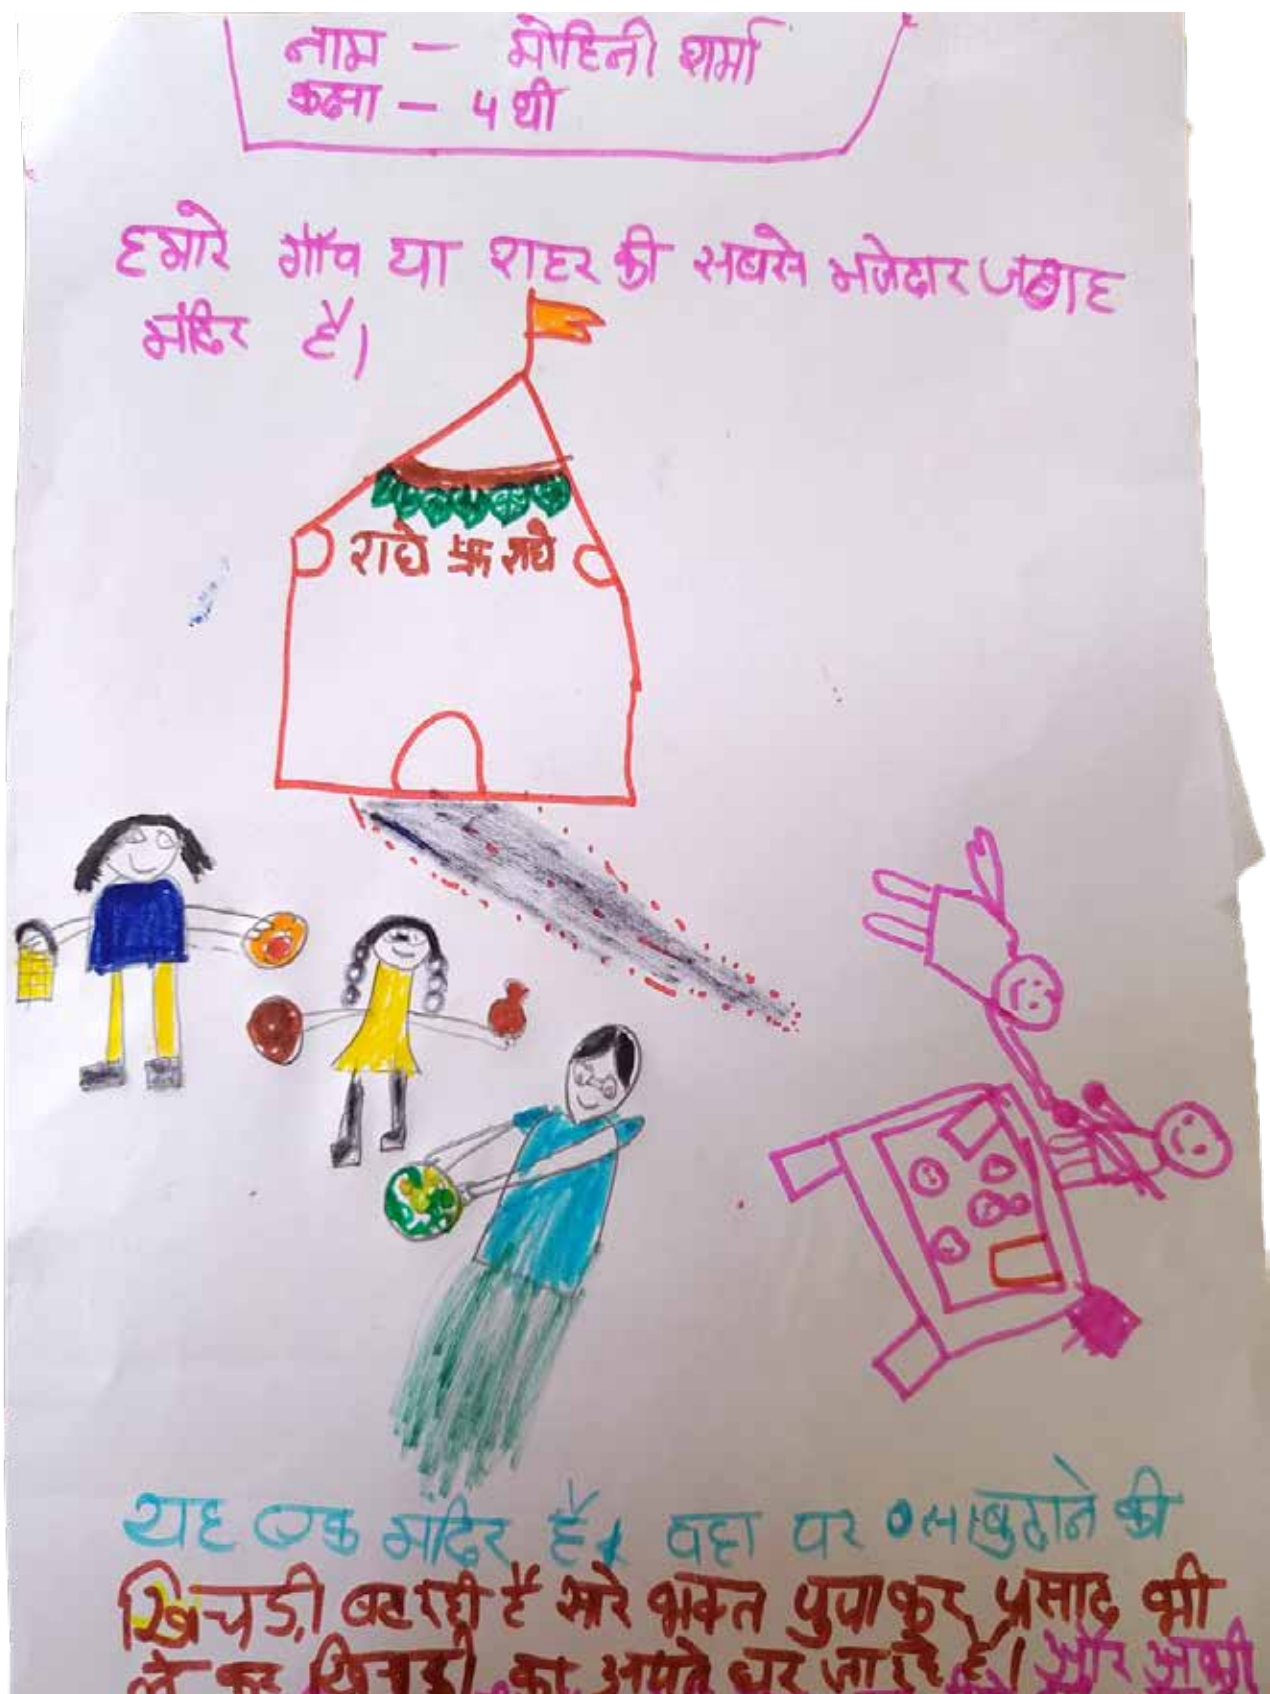 नाम - मोहिनी शर्मा
कक्षा - 4 थी
हमारे गाँव या शहर की सबसे मजेदार जगह
मंदिर है।
राधे 卐 राधे
यह एक मंदिर है। वहा पर साबुदाने की
खिचड़ी बट रही है सारे भक्त पुजा कर प्रसाद भी
ले कर खिचड़ी का अपने घर जा रहे है। और सभी